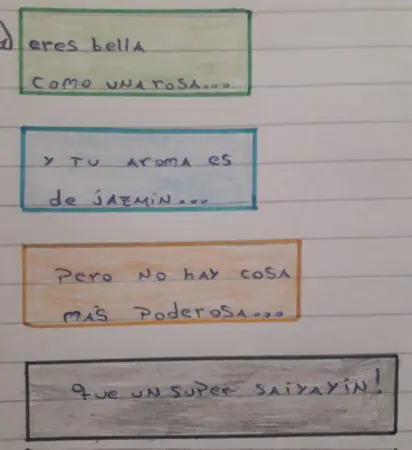 eres bella
como una rosa...
y tu aroma es
de jazmin...
Pero no hay cosa
más Poderosa....
que un super saiyayin!